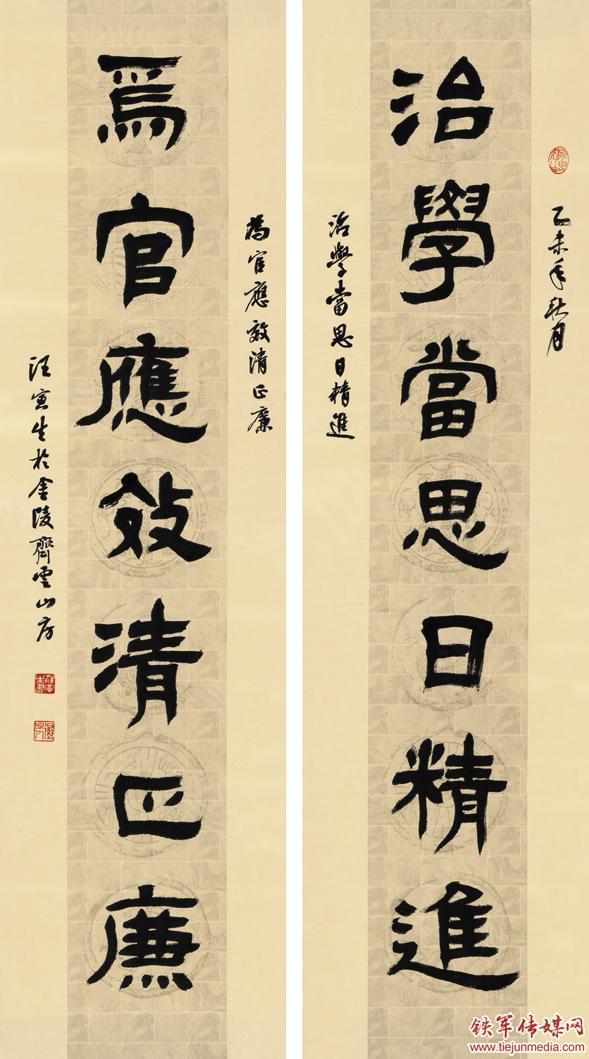 乙未年秋月
治學當思日精進
治學當思日精進
為官應效清正廉
爲官應效清正廉
汪寅生於金陵齊雲山房
铁军传媒网
www.tiejunmedia.com